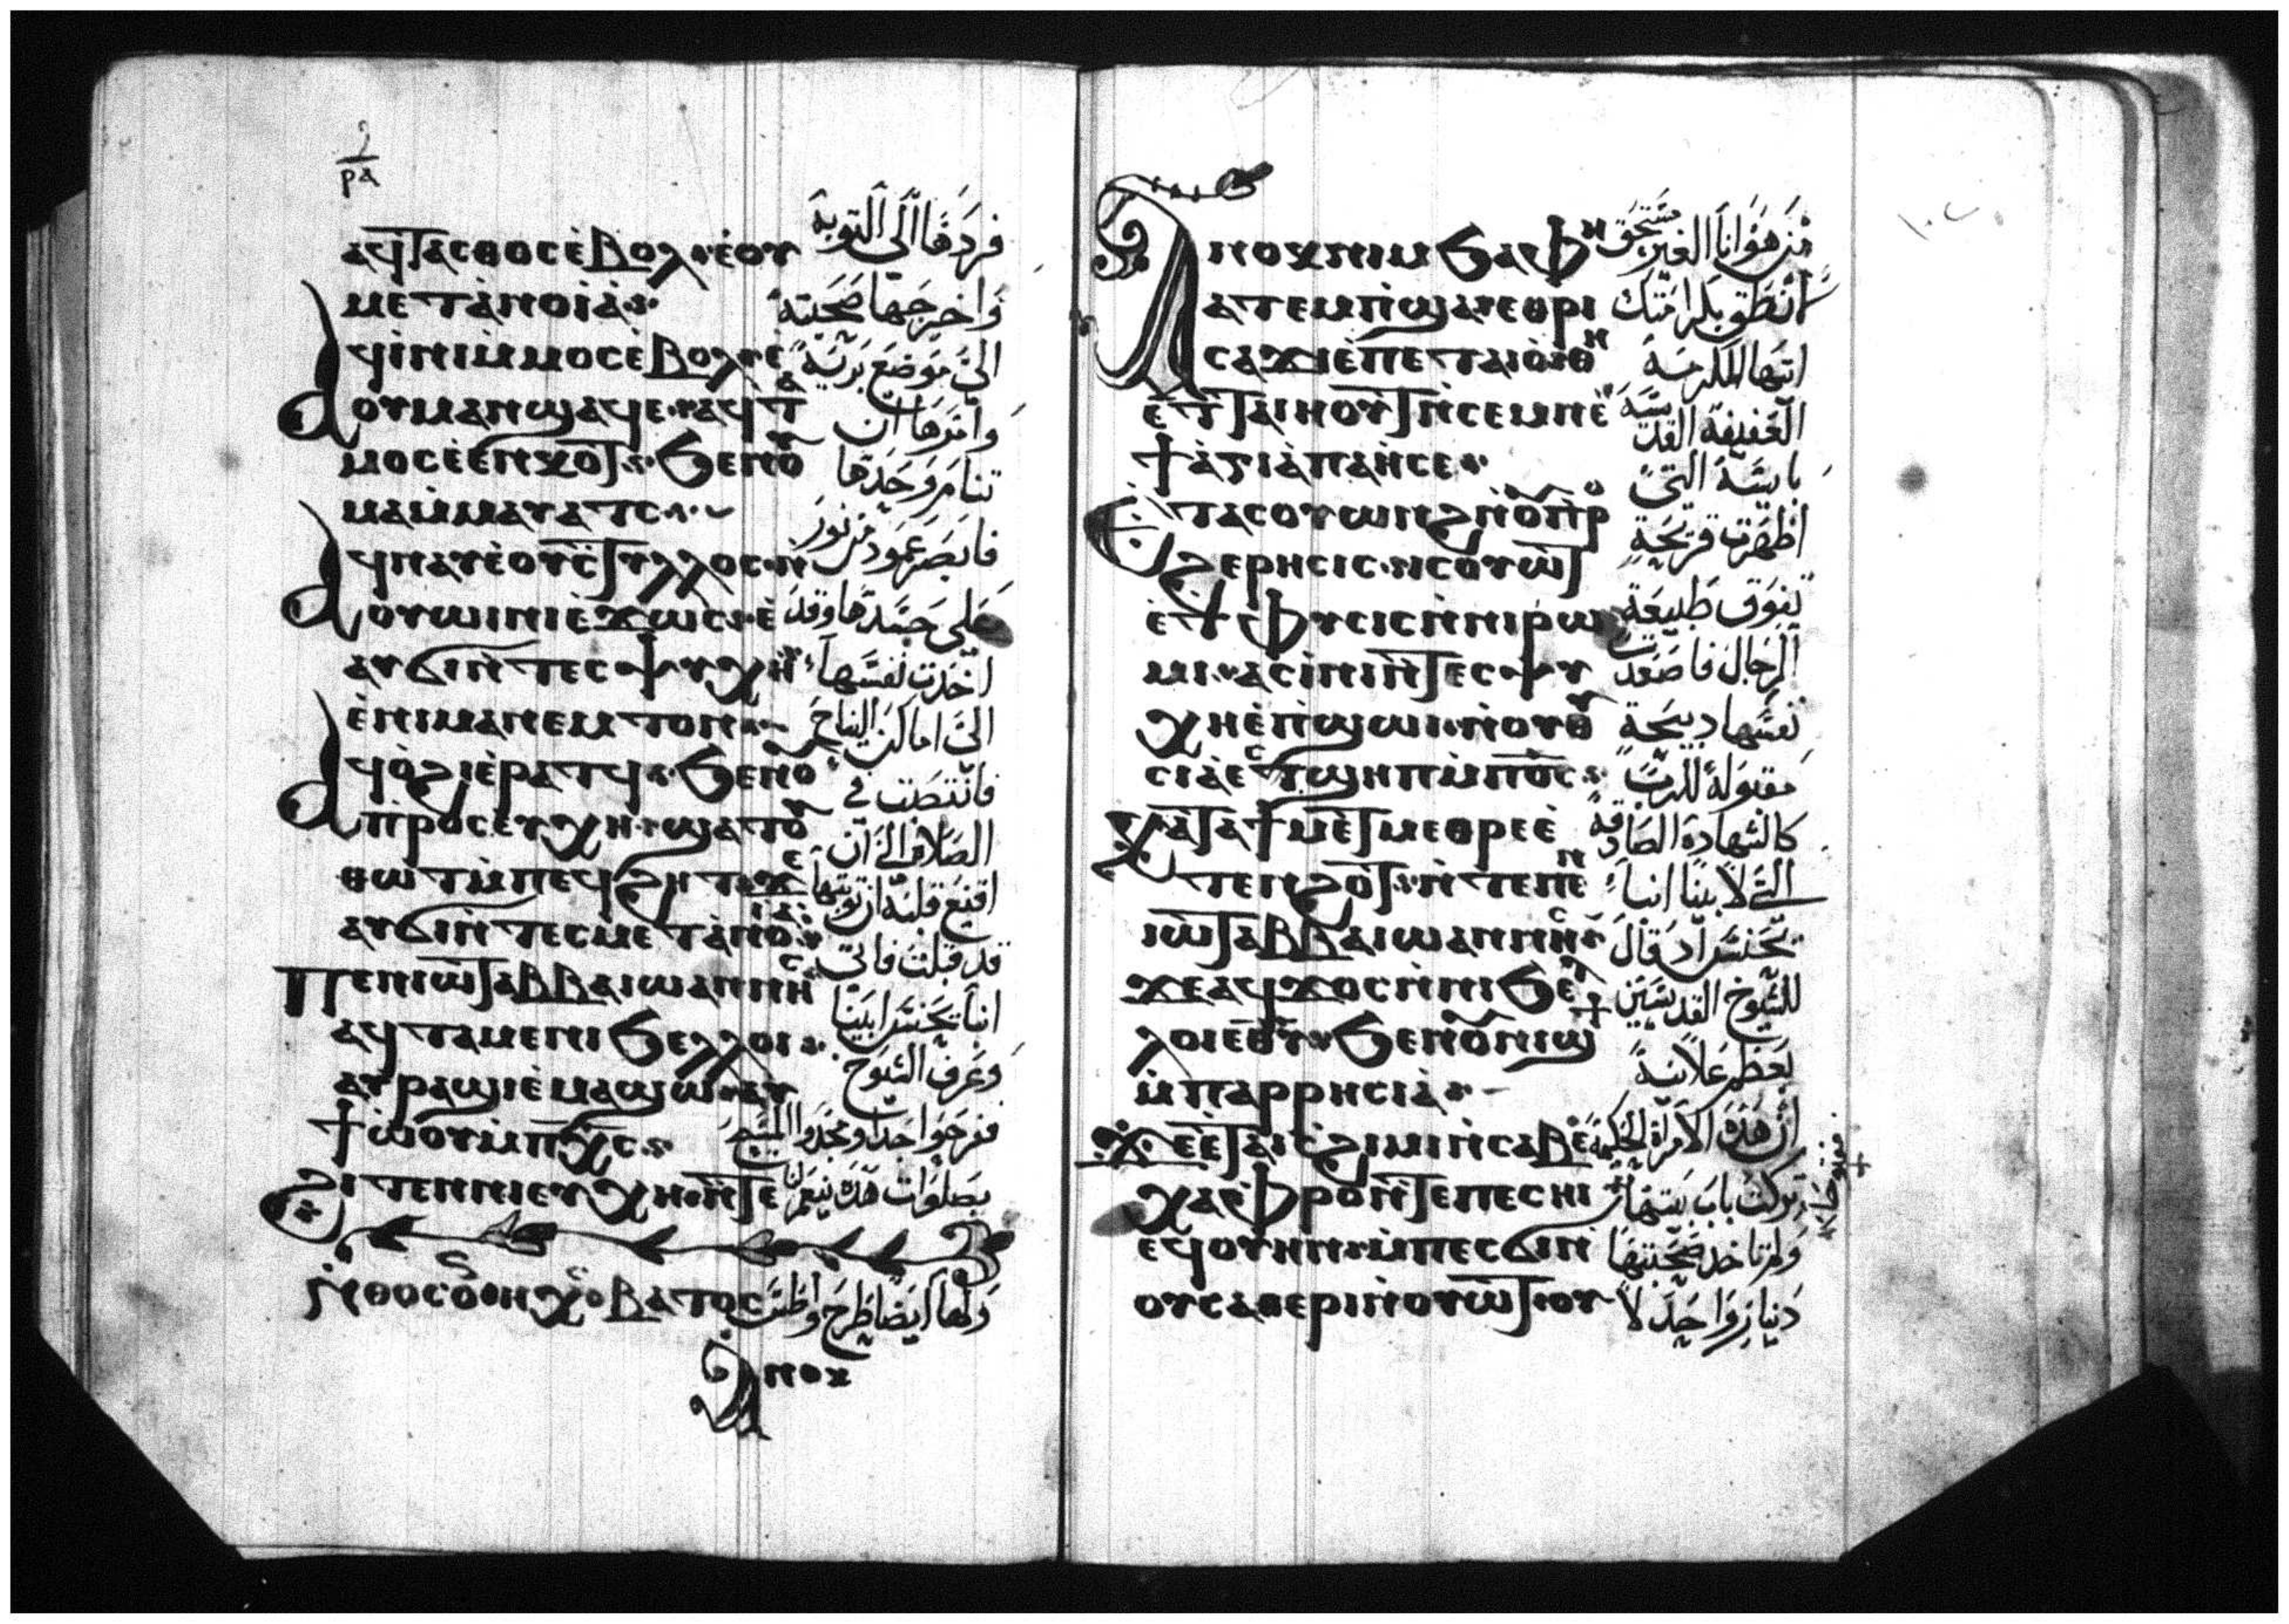 ⲣⲁ
ⲁϥⲧⲁⲥⲑⲟⲥ ⲉ̀ⲃⲟⲗ ⲉ̀ⲟⲩ
ⲙⲉⲧⲁⲛⲟⲓⲁ
ⲁϥⲓⲛⲓ ⲙ̀ⲙⲟⲥ ⲉ̀ⲃⲟⲗ ⲉ̀
ⲟⲩⲙⲁⲛϣⲁϥⲉ ⲁϥⲧ
ⲙⲟⲥ ⲉ̀ⲉⲛⲕⲟⲧ ϧⲉⲛ ⲟ
ⲙⲁⲓ ⲙ̀ⲙⲁⲩⲁⲧⲥ
ⲁϥⲛⲁⲩ ⲉ̀ⲟⲩⲥⲧⲩⲗⲗⲟⲥ ⲛ̀
ⲟⲩⲱⲓⲛⲓ ⲉ̀ϫⲱⲥ ⲉ̀
ⲁⲩϭⲓ ⲛ̀ⲧⲉⲥⲯⲩⲭⲏ
ⲉ̀ⲛⲓⲙⲁⲛⲉⲙⲧⲟⲛ
ⲁϥⲟ̀ϩⲓ ⲉ̀ⲣⲁⲧϥ ϧⲉⲛ ⲟ
ⲡⲣⲟⲥⲉⲩⲭⲏ ϣⲁⲧⲟⲩ
ⲑⲱⲧ ⲙ̀ⲡⲉϥϩⲏⲧ ϫⲉ
ⲁⲩϭⲓ ⲛ̀ⲧⲉⲥⲙⲉⲧⲁⲛⲟⲓⲁ
Ⲡⲉⲛⲓⲱⲧ ⲁⲃⲃⲁ ⲓⲱⲁⲛⲛⲏⲥ
ⲁϥⲧⲁⲙⲉ ⲛⲓϧⲉⲗⲗⲟⲓ
ⲁⲩⲣⲁϣⲓ ⲉ̀ⲙⲁϣⲱ ⲁⲩ
ϯⲱ̀ⲟⲩ ⲙ̀ⲡⲭ̅ⲥ̅
Ϩⲓⲧⲉⲛ ⲛⲓⲉⲩⲭⲏ ⲛ̀ⲧⲉ
ⲃⲁⲧⲟⲥ
Ⲁⲛⲟⲕ
فردها الى التوبة
واخرجها صحبته
الى موضع برية
وامرها ان
تنام وحدها
فابصر عمود من نور
على جسدها وقد
اخذت نفسها
الى اماكن النياح
فانتصب في
الصلاة الى ان
اقنع قلبه ان توبتها
قد قبلت فاتى
انبا يحنس ابينا
وعرف الشيوخ
ففرحوا جدا ومجدوا المسيح
بصلوات هذه
ولها ايضا طرح واطس
Ⲁⲛⲟⲕ ⲛⲓⲙ ϧⲁ ⲫⲏ
ⲁⲧⲉⲙⲡ̀ϣⲁ ⲉⲑⲣⲓ
ⲥⲁϫⲓ ⲉ̀ⲡⲉⲧⲁⲓⲟ̀ ⲱ ⲑⲏ
ⲉⲧⲧⲁⲓⲏⲟⲩⲧ ⲛ̀ⲥⲉⲙⲛⲉ
ϯⲁ̀ⲅⲓⲁ̀ ⲡⲁⲏⲥⲉ
Ⲉⲧⲁⲥⲟⲩⲱⲛϩ ⲛ̀ⲟⲩⲡⲣⲟ
ϩⲉⲣⲏⲥⲓⲥ ⲛ̀ⲥⲟⲩⲱⲧ
ⲉ̀ϯⲫⲩⲥⲓⲥ ⲛ̀ⲛⲓⲣⲱ
ⲙⲓ ⲁⲥⲓⲛⲓ ⲛ̀ⲧⲉⲥⲯⲩ
ⲭⲏ ⲉ̀ⲡ̀ϣⲱⲓ ⲛ̀ⲟⲩⲑⲩ
ⲥⲓⲁ̀ ⲉⲥϣⲏⲡ ⲙ̀ⲡⲟ̅ⲥ̅
Ⲕⲁⲧⲁ ϯⲙⲉⲧⲙⲉⲑⲣⲉ ⲉ̀
ⲧⲉⲛϩⲟⲧ ⲛ̀ⲧⲉ ⲡⲉⲛ
ⲓⲱⲧ ⲁⲃⲃⲁ ⲓⲱⲁⲛⲛⲏⲥ
ϫⲉ ⲁϥϫⲟⲥ ⲛ̀ⲛⲓϧⲉⲗ
ⲗⲟⲓ ⲉⲑⲩ ϧⲉⲛ ⲟⲩⲛⲓϣϯ
ⲙ̀ⲡⲁⲣⲣⲏⲥⲓⲁ̀
Ϫⲉ ⲉ̀ⲧⲁⲓⲥϩⲓⲙⲓ ⲛ̀ⲥⲁⲃⲉ
ⲭⲁ ⲫⲣⲟ ⲛ̀ⲧⲉ ⲡⲉⲥⲏⲓ
ⲉϥⲟⲩⲏⲛ ⲙ̀ⲡⲉⲥϭⲓ ⲛ
ⲟⲩⲥⲁⲑⲉⲣⲓ ⲛ̀ⲟⲩⲱⲧ ⲟⲩ
من هو انا الغير مستحق
انطق بكرامتك
ايتها المكرمة
العفيفة القديسة
بايسة التي
اظهرت قريحة
تفوق طبيعة
الرجال فاصعدت
نفسها ذبيحة
مقبولة للرب
كالشهادة الصادقة
التي لابينا انبا
يحنس اذ قال
للشيوخ القديسين
بعظم علانية
ان هذه الامراة الحكيمة
تركت باب بيتها
ولم تاخذ صحبتها
دينار واحد لا